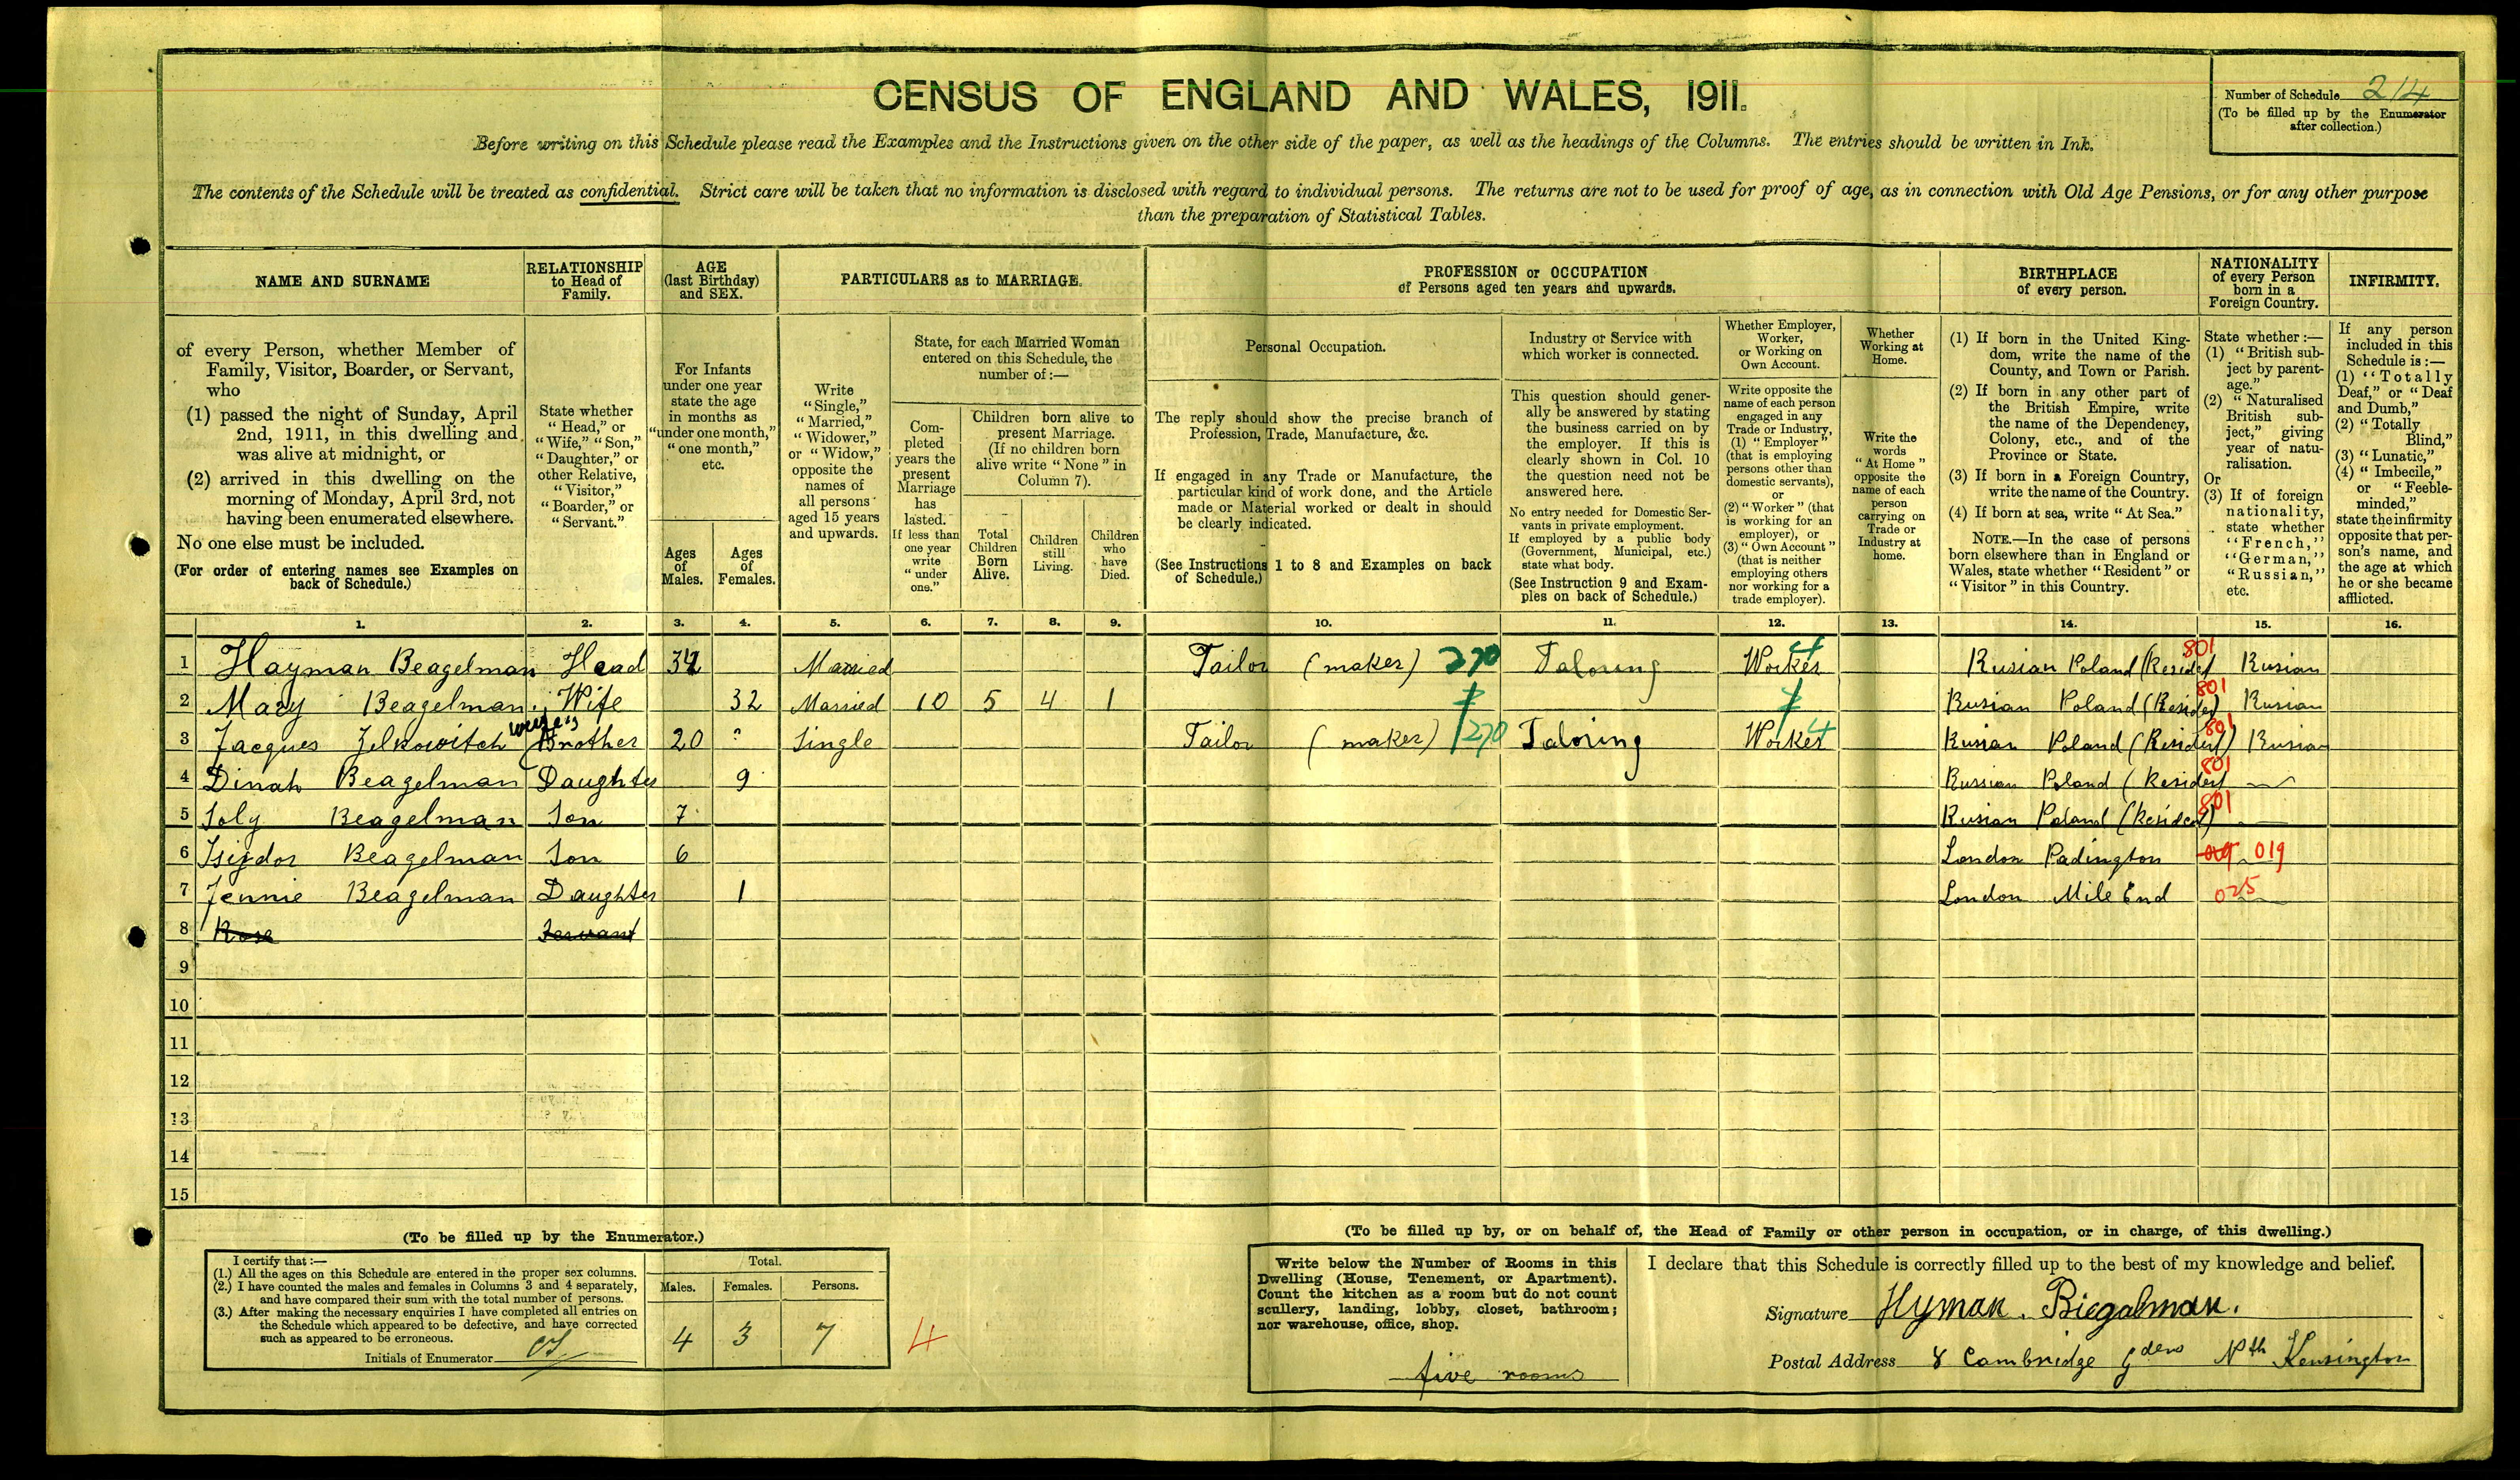 CENSUS OF ENGLAND AND WALES, 1911.
Number of Schedule 214
(To be filled up by the Enumerator
after collection.)
Before writing on this Schedule please read the Examples and the Instructions given on the other side of the paper, as well as the headings of the Columns. The entries should be written in Ink.
The contents of the Schedule will be treated as confidential. Strict care will be taken that no information is disclosed with regard to individual persons. The returns are not to be used for proof of age, as in connection with Old Age Pensions, or for any other purpose
than the preparation of Statistical Tables.
NAME AND SURNAME
of every Person, whether Member of
Family, Visitor, Boarder, or Servant,
who
(1) passed the night of Sunday, April
2nd, 1911, in this dwelling and
was alive at midnight, or
(2) arrived in this dwelling on the
morning of Monday, April 3rd, not
having been enumerated elsewhere.
No one else must be included.
(For order of entering names see Examples on
back of Schedule.)
RELATIONSHIP
to Head of
Family.
State whether
"Head," or
"Wife," "Son,"
"Daughter," or
other Relative,
"Visitor,"
"Boarder," or
"Servant."
AGE
(last Birthday)
and SEX.
For Infants
under one year
state the age
in months as
"under one month,"
"one month,"
etc.
Ages
of
Males.
Ages
of
Females.
PARTICULARS as to MARRIAGE.
Write
"Single,"
"Married,"
"Widower,"
or "Widow,"
opposite the
names of
all persons
aged 15 years
and upwards.
State, for each Married Woman
entered on this Schedule, the
number of:—
Com-
pleted
years the
present
Marriage
has
lasted.
If less than
one year
write
"under
one."
Children born alive to
present Marriage.
(If no children born
alive write "None" in
Column 7).
Total
Children
Born
Alive.
Children
still
Living.
Children
who
have
Died.
PROFESSION or OCCUPATION
of Persons aged ten years and upwards.
Personal Occupation.
The reply should show the precise branch of
Profession, Trade, Manufacture, &c.
If engaged in any Trade or Manufacture, the
particular kind of work done, and the Article
made or Material worked or dealt in should
be clearly indicated.
(See Instructions 1 to 8 and Examples on back
of Schedule.)
Industry or Service with
which worker is connected.
This question should gener-
ally be answered by stating
the business carried on by
the employer. If this is
clearly shown in Col. 10
the question need not be
answered here.
No entry needed for Domestic Ser-
vants in private employment.
If employed by a public body
(Government, Municipal, etc.)
state what body.
(See Instruction 9 and Exam-
ples on back of Schedule.)
Whether Employer,
Worker,
or Working on
Own Account.
Write opposite the
name of each person
engaged in any
Trade or Industry,
(1) "Employer"
(that is employing
persons other than
domestic servants),
or
(2) "Worker" (that
is working for an
employer), or
(3) "Own Account"
(that is neither
employing others
nor working for a
trade employer).
Whether
Working at
Home.
Write the
words
"At Home"
opposite the
name of each
person
carrying on
Trade or
Industry at
home.
BIRTHPLACE
of every person.
(1) If born in the United King-
dom, write the name of the
County, and Town or Parish.
(2) If born in any other part of
the British Empire, write
the name of the Dependency,
Colony, etc., and of the
Province or State.
(3) If born in a Foreign Country,
write the name of the Country.
(4) If born at sea, write "At Sea."
NOTE.—In the case of persons
born elsewhere than in England or
Wales, state whether "Resident" or
"Visitor" in this Country.
NATIONALITY
of every Person
born in a
Foreign Country.
State whether:—
(1) "British sub-
ject by parent-
age."
(2) "Naturalised
British sub-
ject," giving
year of natu-
ralisation.
Or
(3) If of foreign
nationality,
state whether
"French,"
"German,"
"Russian,"
etc.
INFIRMITY.
If any person
included in this
Schedule is:—
(1) "Totally
Deaf," or "Deaf
and Dumb,"
(2) "Totally
Blind,"
(3) "Lunatic,"
(4) "Imbecile,"
or "Feeble-
minded,"
state the infirmity
opposite that per-
son's name, and
the age at which
he or she became
afflicted.
1. 2. 3. 4. 5. 6. 7. 8. 9. 10. 11. 12. 13. 14. 15. 16.
1 Hayman Beagelman Head Married Tailor (maker) 270 Taloring Worker 4 Rusian Poland (Resident 801 Rusian
2 Mary Beagelman Wife 32 Married 10 5 4 1 Rusian Poland (Resident) 801 Rusian
3 Jacques Zelkowitch Brother 20 ? Single Tailor (maker) 270 Taloring Worker 4 Rusian Poland (Resident) 801 Rusian
4 Dinah Beagelman Daughter 9 Russian Poland (Resident 801
5 Soly Beagelman Son 7 Rusian Poland (Resident) 801
6 Isydor Beagelman Son 6 London Padington 019
7 Jennie Beagelman Daughter 1 London Mile End 025
8 Rose Servant
9
10
11
12
13
14
15
(To be filled up by the Enumerator.)
I certify that:—
(1.) All the ages on this Schedule are entered in the proper sex columns.
(2.) I have counted the males and females in Columns 3 and 4 separately,
and have compared their sum with the total number of persons.
(3.) After making the necessary enquiries I have completed all entries on
the Schedule which appeared to be defective, and have corrected
such as appeared to be erroneous.
Initials of Enumerator
Total.
Males. Females. Persons.
4 3 7 4
(To be filled up by, or on behalf of, the Head of Family or other person in occupation, or in charge, of this dwelling.)
Write below the Number of Rooms in this
Dwelling (House, Tenement, or Apartment).
Count the kitchen as a room but do not count
scullery, landing, lobby, closet, bathroom;
nor warehouse, office, shop.
five rooms
I declare that this Schedule is correctly filled up to the best of my knowledge and belief.
Signature Hyman. Biegalman.
Postal Address 8 Cambridge Gdens Nth Kensington